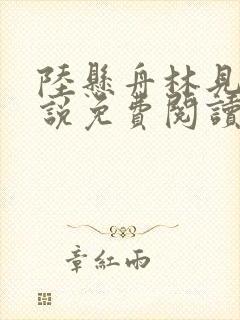 陸懸舟林見
說免費閱讀
章紅雨